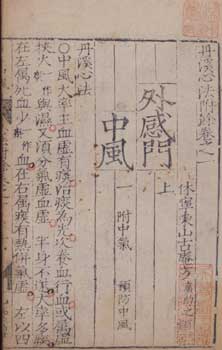 丹溪心法附餘卷之一
休寧東山古菴方廣約之類集
外感門上
中風一 附中氣 預防中風
丹溪心法
○中風大率主血虛有痰治痰為先次養血行血或屬虛
挾火與濕又須分氣虛血虛半身不遂大率多痰
在左屬死血少血在右屬痰有熱併氣虛左以四